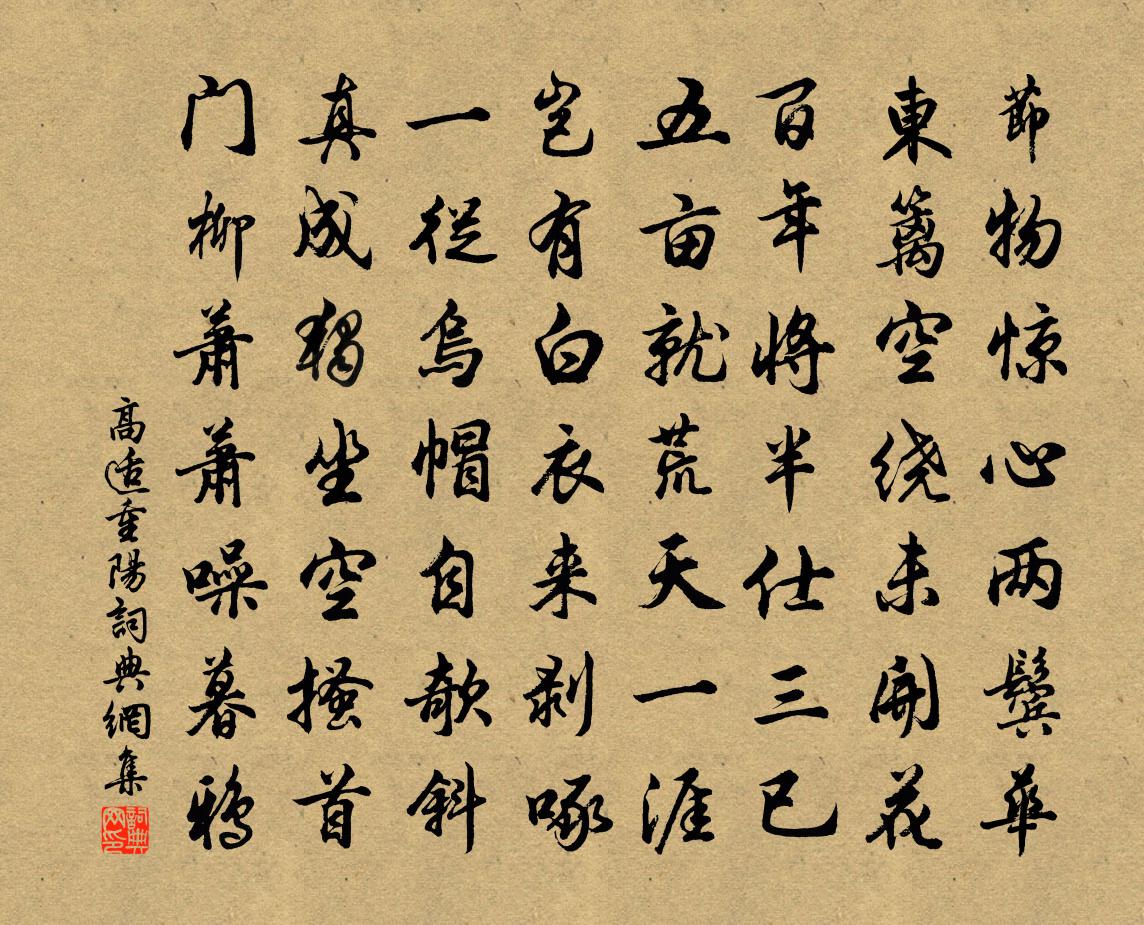 節物惊心两鬓華
東籬空绕未開花
百年将半仕三已
五亩就荒天一涯
岂有白衣来剥啄
一從烏帽自欹斜
真成獨坐空搔首
门柳萧萧噪暮鴉
高适重陽詞典網集
詞典网印